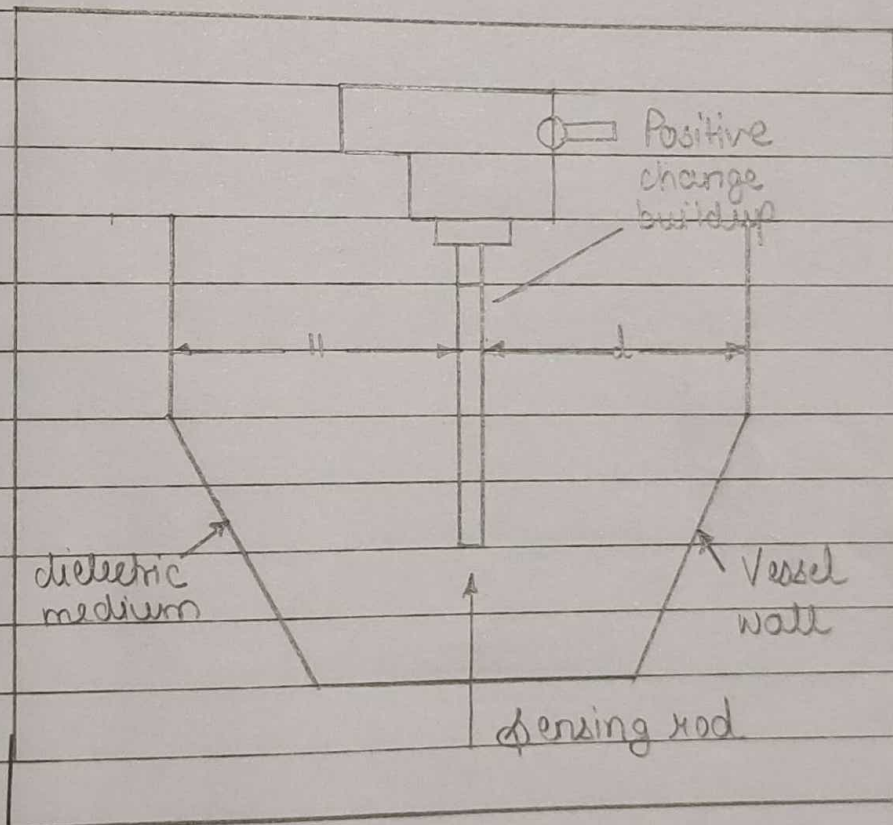 Positive
change
buildup
d
dielectric
medium
Vessel
wall
Sensing rod